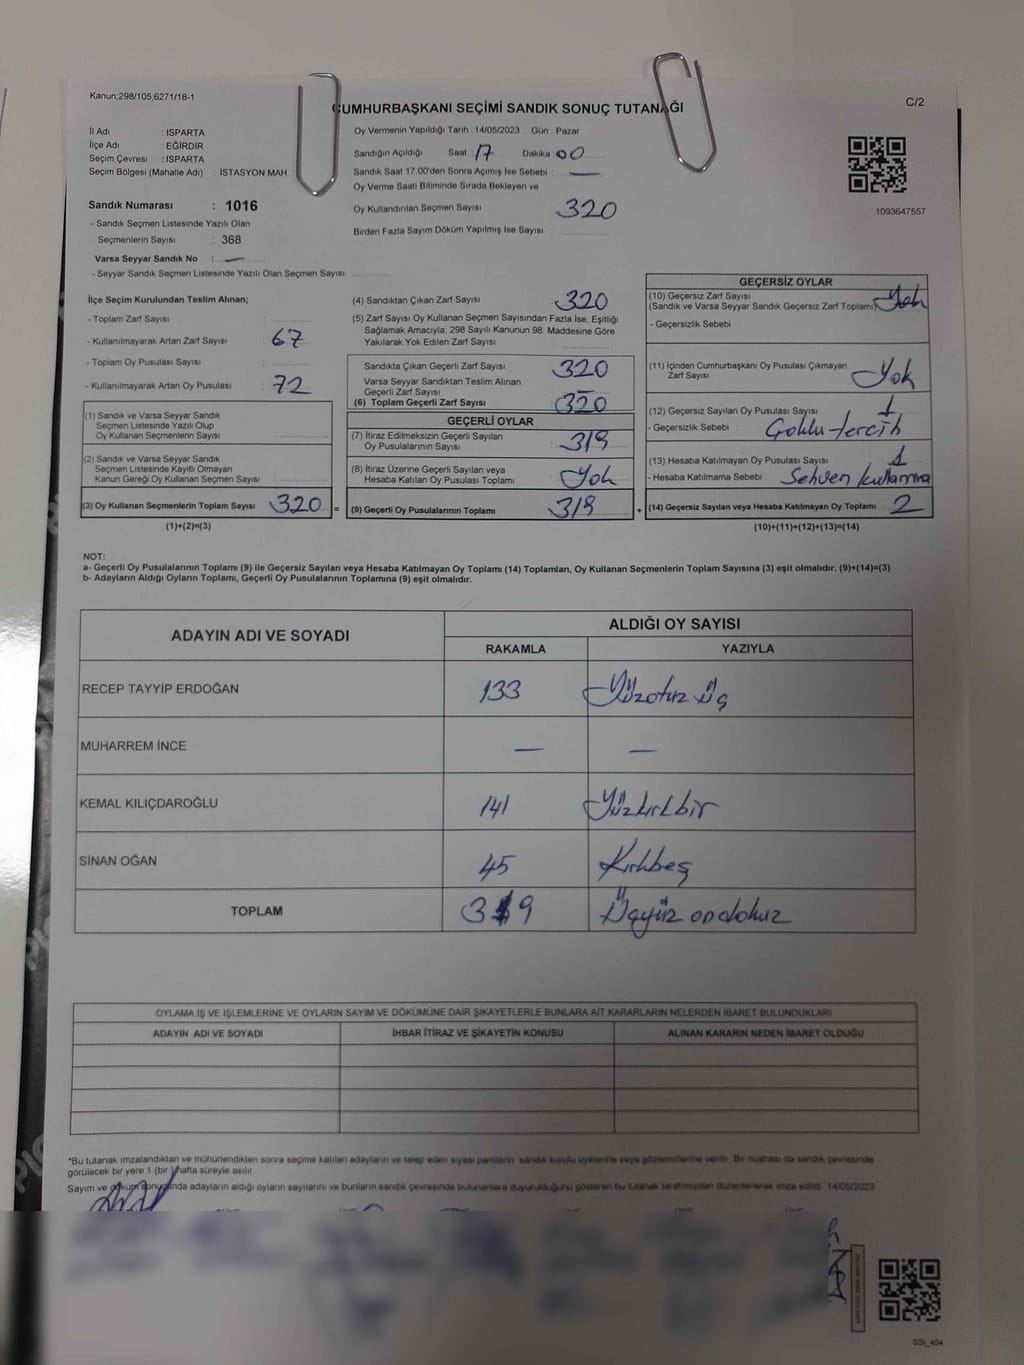 Kanun;298/105;6271/18-1
C/2
CUMHURBAŞKANI SEÇİMİ SANDIK SONUÇ TUTANAĞI
İl Adı : ISPARTA
İlçe Adı : EĞİRDİR
Seçim Çevresi : ISPARTA
Seçim Bölgesi (Mahalle Adı) : İSTASYON MAH
Oy Vermenin Yapıldığı Tarih : 14/05/2023 Gün : Pazar
Sandığın Açıldığı Saat 17 Dakika 00
Sandık Saat 17:00'den Sonra Açımış İse Sebebi : —
Oy Verme Saati Bitiminde Sırada Bekleyen ve
Oy Kullandırılan Seçmen Sayısı 320
Birden Fazla Sayım Döküm Yapılmış İse Sayısı
1093647557
Sandık Numarası : 1016
- Sandık Seçmen Listesinde Yazılı Olan
Seçmenlerin Sayısı : 368
Varsa Seyyar Sandık No : —
- Seyyar Sandık Seçmen Listesinde Yazılı Olan Seçmen Sayısı
İlçe Seçim Kurulundan Teslim Alınan;
- Toplam Zarf Sayısı :
- Kullanılmayarak Artan Zarf Sayısı : 67
- Toplam Oy Pusulası Sayısı :
- Kullanılmayarak Artan Oy Pusulası : 72
(1) Sandık ve Varsa Seyyar Sandık
Seçmen Listesinde Yazılı Olup
Oy Kullanan Seçmenlerin Sayısı :
(2) Sandık ve Varsa Seyyar Sandık
Seçmen Listesinde Kayıtlı Olmayan
Kanun Gereği Oy Kullanan Seçmen Sayısı :
(3) Oy Kullanan Seçmenlerin Toplam Sayısı : 320 =
(1)+(2)=(3)
(4) Sandıktan Çıkan Zarf Sayısı 320
(5) Zarf Sayısı Oy Kullanan Seçmen Sayısından Fazla İse, Eşitliği
Sağlamak Amacıyla; 298 Sayılı Kanunun 98. Maddesine Göre
Yakılarak Yok Edilen Zarf Sayısı :
Sandıkta Çıkan Geçerli Zarf Sayısı 320
Varsa Seyyar Sandıktan Teslim Alınan
Geçerli Zarf Sayısı : —
(6) Toplam Geçerli Zarf Sayısı 320
GEÇERLİ OYLAR
(7) İtiraz Edilmeksizin Geçerli Sayılan
Oy Pusulasının Sayısı : 319
(8) İtiraz Üzerine Geçerli Sayılan veya
Hesaba Katılan Oy Pusulası Toplamı Yok
(9) Geçerli Oy Pusulalarının Toplamı 318 +
GEÇERSİZ OYLAR
(10) Geçersiz Zarf Sayısı Yok
(Sandık ve Varsa Seyyar Sandık Geçersiz Zarf Toplamı)
- Geçersizlik Sebebi :
(11) İçinden Cumhurbaşkanı Oy Pusulası Çıkmayan
Zarf Sayısı Yok
(12) Geçersiz Sayılan Oy Pusulası Sayısı : 1
- Geçersizlik Sebebi : Çoklu tercih
(13) Hesaba Katılmayan Oy Pusulası Sayısı : 1
- Hesaba Katılmama Sebebi : Sehven kullanma
(14) Geçersiz Sayılan veya Hesaba Katılmayan Oy Toplamı : 2
(10)+(11)+(12)+(13)=(14)
NOT:
a- Geçerli Oy Pusulalarının Toplamı (9) ile Geçersiz Sayılan veya Hesaba Katılmayan Oy Toplamı (14) Toplamları, Oy Kullanan Seçmenlerin Toplam Sayısına (3) eşit olmalıdır. (9)+(14)=(3)
b- Adayların Aldığı Oyların Toplamı, Geçerli Oy Pusulalarının Toplamına (9) eşit olmalıdır.
ADAYIN ADI VE SOYADI
ALDIĞI OY SAYISI
RAKAMLA YAZIYLA
RECEP TAYYİP ERDOĞAN 133 Yüzotuz üç
MUHARREM İNCE — —
KEMAL KILIÇDAROĞLU 141 Yüzkırkbir
SİNAN OĞAN 45 Kırkbeş
TOPLAM 319 Üçyüz ondokuz
OYLAMA İŞ VE İŞLEMLERİNE VE OYLARIN SAYIM VE DÖKÜMÜNE DAİR ŞİKAYETLERLE BUNLARA AİT KARARLARIN NELERDEN İBARET BULUNDUKLARI
ADAYIN ADI VE SOYADI İHBAR İTİRAZ VE ŞİKAYETİN KONUSU ALINAN KARARIN NEDEN İBARET OLDUĞU
*Bu tutanak imzalandıktan ve mühürlendikten sonra seçime katılan adayların ve talep eden siyasi partilerin sandık kurulu üyelerine veya gözlemcilerine verilir. Bir nüshası da sandık çevresinde
görülecek bir yere 1 (bir) hafta süreyle asılır
Sayım ve döküm sonucunda adayların aldığı oyların sayılarını ve bunların sandık çevresinde bulunanlara duyurulduğunu gösteren bu tutanak tarafımızdan düzenlenerek imza edildi. 14/05/2023
SSI_404